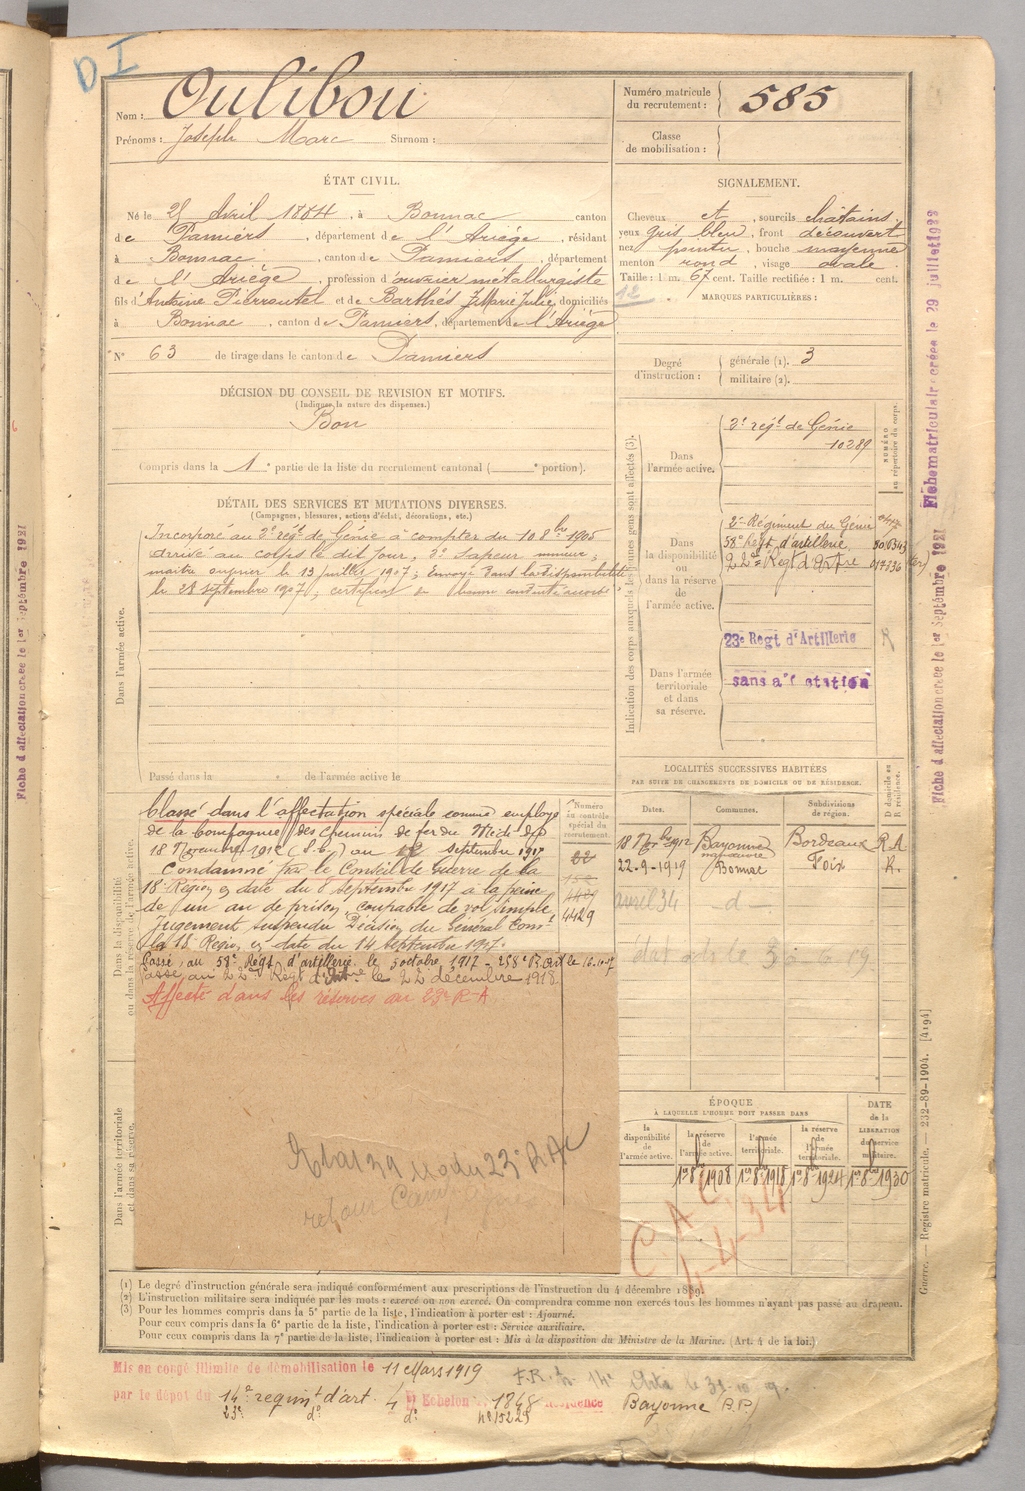 DI
Nom : Oulibou
Prénoms : Joseph Marc Surnom :
Numéro matricule du recrutement : 585
Classe de mobilisation :
ÉTAT CIVIL.
Né le 25 Avril 1884, à Bonnac canton
de Pamiers, département de l'Ariège, résidant
à Bonnac, canton de Pamiers, département
de l'Ariège, profession d'ouvrier métallurgiste
fils d'Antoine Pierroutet et de Barthés J. Marie Julie, domiciliés
à Bonnac, canton de Pamiers, département de l'Ariège
N° 63 de tirage dans le canton de Pamiers
SIGNALEMENT.
Cheveux et, sourcils châtains
yeux gris bleu, front découvert
nez pointu, bouche moyenne
menton rond, visage ovale
Taille : 1 m. 67 cent. Taille rectifiée : 1 m. cent.
12
MARQUES PARTICULIÈRES :
Degré d'instruction : générale (1). 3
militaire (2).
DÉCISION DU CONSEIL DE REVISION ET MOTIFS.
(Indiquer la nature des dispenses.)
Bon
Compris dans la 1e partie de la liste du recrutement cantonal ( e portion).
DÉTAIL DES SERVICES ET MUTATIONS DIVERSES.
(Campagnes, blessures, actions d'éclat, décorations, etc.)
Dans l'armée active.
Incorporé au 2e régt de Génie à compter du 10 8bre 1905
arrivé au corps le dit jour, 2e Sapeur mineur,
maître ouvrier le 13 juillet 1907; Envoyé dans la disponibilité
le 28 septembre 1907, certificat de bonne conduite accordé
Passé dans la de l'armée active le
Indication des corps auxquels les jeunes gens sont affectés (3).
NUMÉRO au répertoire du corps.
Dans l'armée active.
2e régt de Génie
10289
Dans la disponibilité ou dans la réserve de l'armée active.
2e Régiment du Génie
58e Regt d'artillerie
22e Regt d'Artie 017336
Dans l'armée territoriale et dans sa réserve.
23e Regt d'Artillerie R
sans affectation
LOCALITÉS SUCCESSIVES HABITÉES
PAR SUITE DE CHANGEMENTS DE DOMICILE OU DE RÉSIDENCE.
Dates. Communes. Subdivisions de région. D domicile ou R résidence.
18 Nbre 1912 Bayonne Bordeaux R.A.
22-9-1919 Bonnac Foix R.
avril 34 — d —
Dans la disponibilité ou dans la réserve de l'armée active.
Numéro au contrôle spécial du recrutement.
Classé dans l'affectation spéciale comme employé
de la Compagnie des Chemins de fer du Midi dep
18 Novembre 1912 au septembre 1917
Condamné par le Conseil de Guerre de la
18e Région en date du 8 septembre 1917 à la peine
de un an de prison, coupable de vol simple
Jugement suspendu Décision du Général Comt
la 18e Région en date du 14 septembre 1917.
4429
Passé au 58e Regt d'artillerie le 5 octobre 1917 - 258e Rt Art le 16-10-17
Passé au 22e Regt d'Artie le 22 décembre 1918
Affecté dans les réserves au 23e R-A
Dans l'armée territoriale et dans sa réserve.
ÉPOQUE
À LAQUELLE L'HOMME DOIT PASSER DANS
la disponibilité de l'armée active. la réserve de l'armée active. l'armée territoriale. la réserve de l'armée territoriale. DATE de la LIBÉRATION du service militaire.
1er 8bre 1908 1er 8bre 1918 1er 8bre 1924 1er 8bre 1930
C A C
4-4-34
(1) Le degré d'instruction générale sera indiqué conformément aux prescriptions de l'instruction du 4 décembre 1889.
(2) L'instruction militaire sera indiquée par les mots : exercé ou non exercé. On comprendra comme non exercés tous les hommes n'ayant pas passé au drapeau.
(3) Pour les hommes compris dans la 5e partie de la liste, l'indication à porter est : Ajourné.
Pour ceux compris dans la 6e partie de la liste, l'indication à porter est : Service auxiliaire.
Pour ceux compris dans la 7e partie de la liste, l'indication à porter est : Mis à la disposition du Ministre de la Marine. (Art. 4 de la loi.)
Mis en congé illimité de démobilisation le 11 Mars 1919
par le dépôt du 14e regimt d'art. 4 Echelon n° 1848 Résidence Bayonne (B.P.)
23e do do n° 15225
Guerre. — Registre matricule. — 232-89-1904. [4194]
Fiche matriculaire créée le 29 juillet 1922
Fiche d'affectation créée le 1er Septembre 1921
Fiche d'affectation créée le 1er Septembre 1921